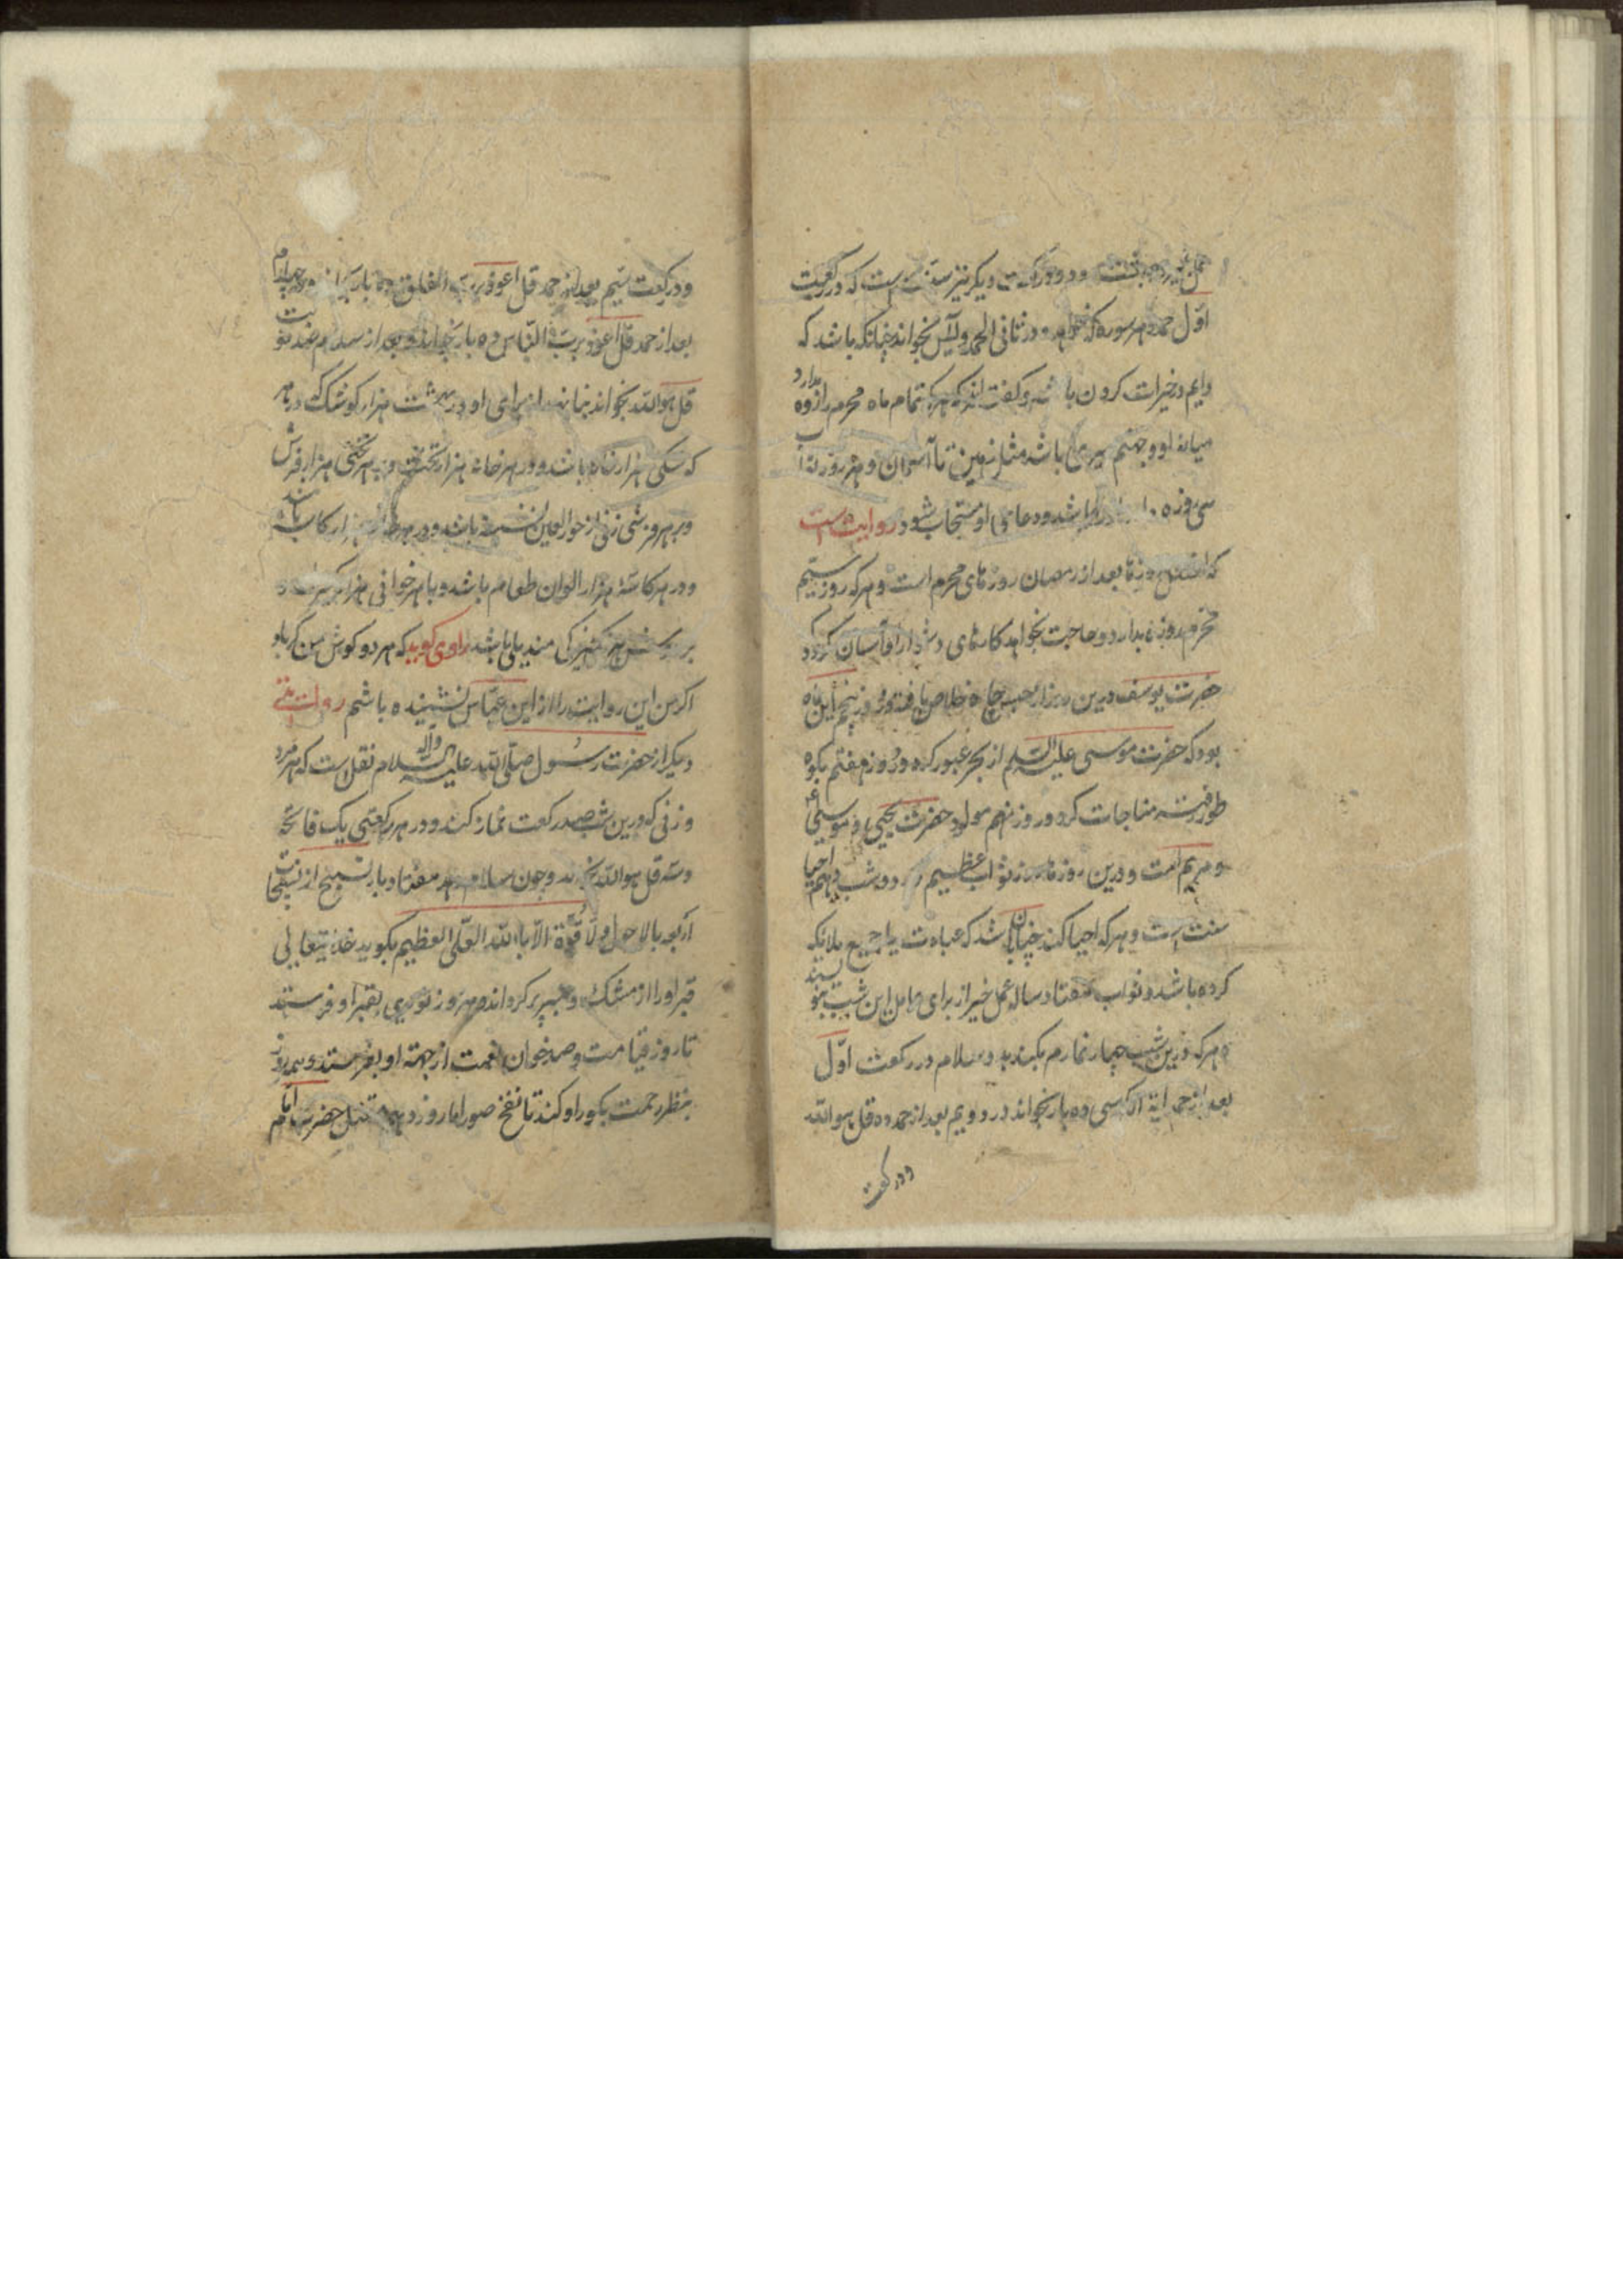 و دو رکعت دیکر نیز سنت است که در رکعت
اول حمد و هر سوره که خواهد و در ثانی الحمد و یس بخواند چنانکه باشد که
دایم در خیرات کردن باشد و کفته اند که هرکه تمام ماه محرم را روزه دارد
میانه او و جهنم باشد مثل زمین تا آسمان و هر روز
سی روزه باشد و دعای او مستجاب شود روایت است
که افضل روزها بعد از رمضان روزهای محرم است و هرکه روز سیم
محرم روزه بدارد و حاجت بخواهد کارهای دشوار او آسان کردد
حضرت یوسف درین روز از حبس چاه خلاص یافته و روز پنجم این ماه
بود که حضرت موسی علیه السلم از بحر عبور کرده و روز هفتم بکوه
طور رفته مناجات کرد و روز نهم مولود حضرت یحیی و موسی
و مریم است و درین روز ثواب عظیم دارد و شب دهم احیا
سنت است و هرکه احیا کند چنان باشد که عبادت جمیع ملایکه
کرده باشد و ثواب هفتاد ساله عمل خیر از برای عامل این شب بنویسند
و هرکه درین شب چهار نماز بکند بدو سلام در رکعت اول
بعد از حمد ایة الکرسی ده بار بخواند در دویم بعد از حمد ده قل هو الله
ودر رکعت
و در رکعت سیم بعد از حمد قل اعوذ برب الفلق ده بار بخواند و در چهارم
بعد از حمد قل اعوذ برب الناس ده بار بخواند و بعد از سلام صد نوبت
قل هو الله بخواند بنا نهند از برای او در بهشت هزار کوشک که در هر
کوشکی هزار خانه باشد و در هر خانه هزار تخت و بر هر تختی هزار فرش
و بر هر فرشی زنی از حورالعین نشسته باشد و در هر خانه هزار کاسه باشد
و در هر کاسه هزار الوان طعام باشد و با هر خوانی هزار کنیزک
بر هر کنیزکی مندیلی باشد راوی کوید که هر دو کوش من کر باد
اکر من این روایت را از ابن عباس نشنیده باشم روایتی
دیکر از حضرت رسول صلی الله علیه وآله السلام نقل است که هر مرد
و زنی که درین شب صد رکعت نماز کند و در هر رکعتی یک فاتحه
و سه قل هو الله بخواند و چون سلام دهد هفتاد بار تسبیح از تسبیحات
اربعه با لا حول ولا قوة الا بالله العلی العظیم بکوید خدایتعالی
قبر او را از مشک و عنبر پر کرداند و هر روز نوری بقبر او فرستد
تا روز قیامت و صد خوان نعمت از جهته او بفرستد و همه روز
بنظر رحمت بکور او کند تا نفخ صور اما روز دهم قتل حضرت امام